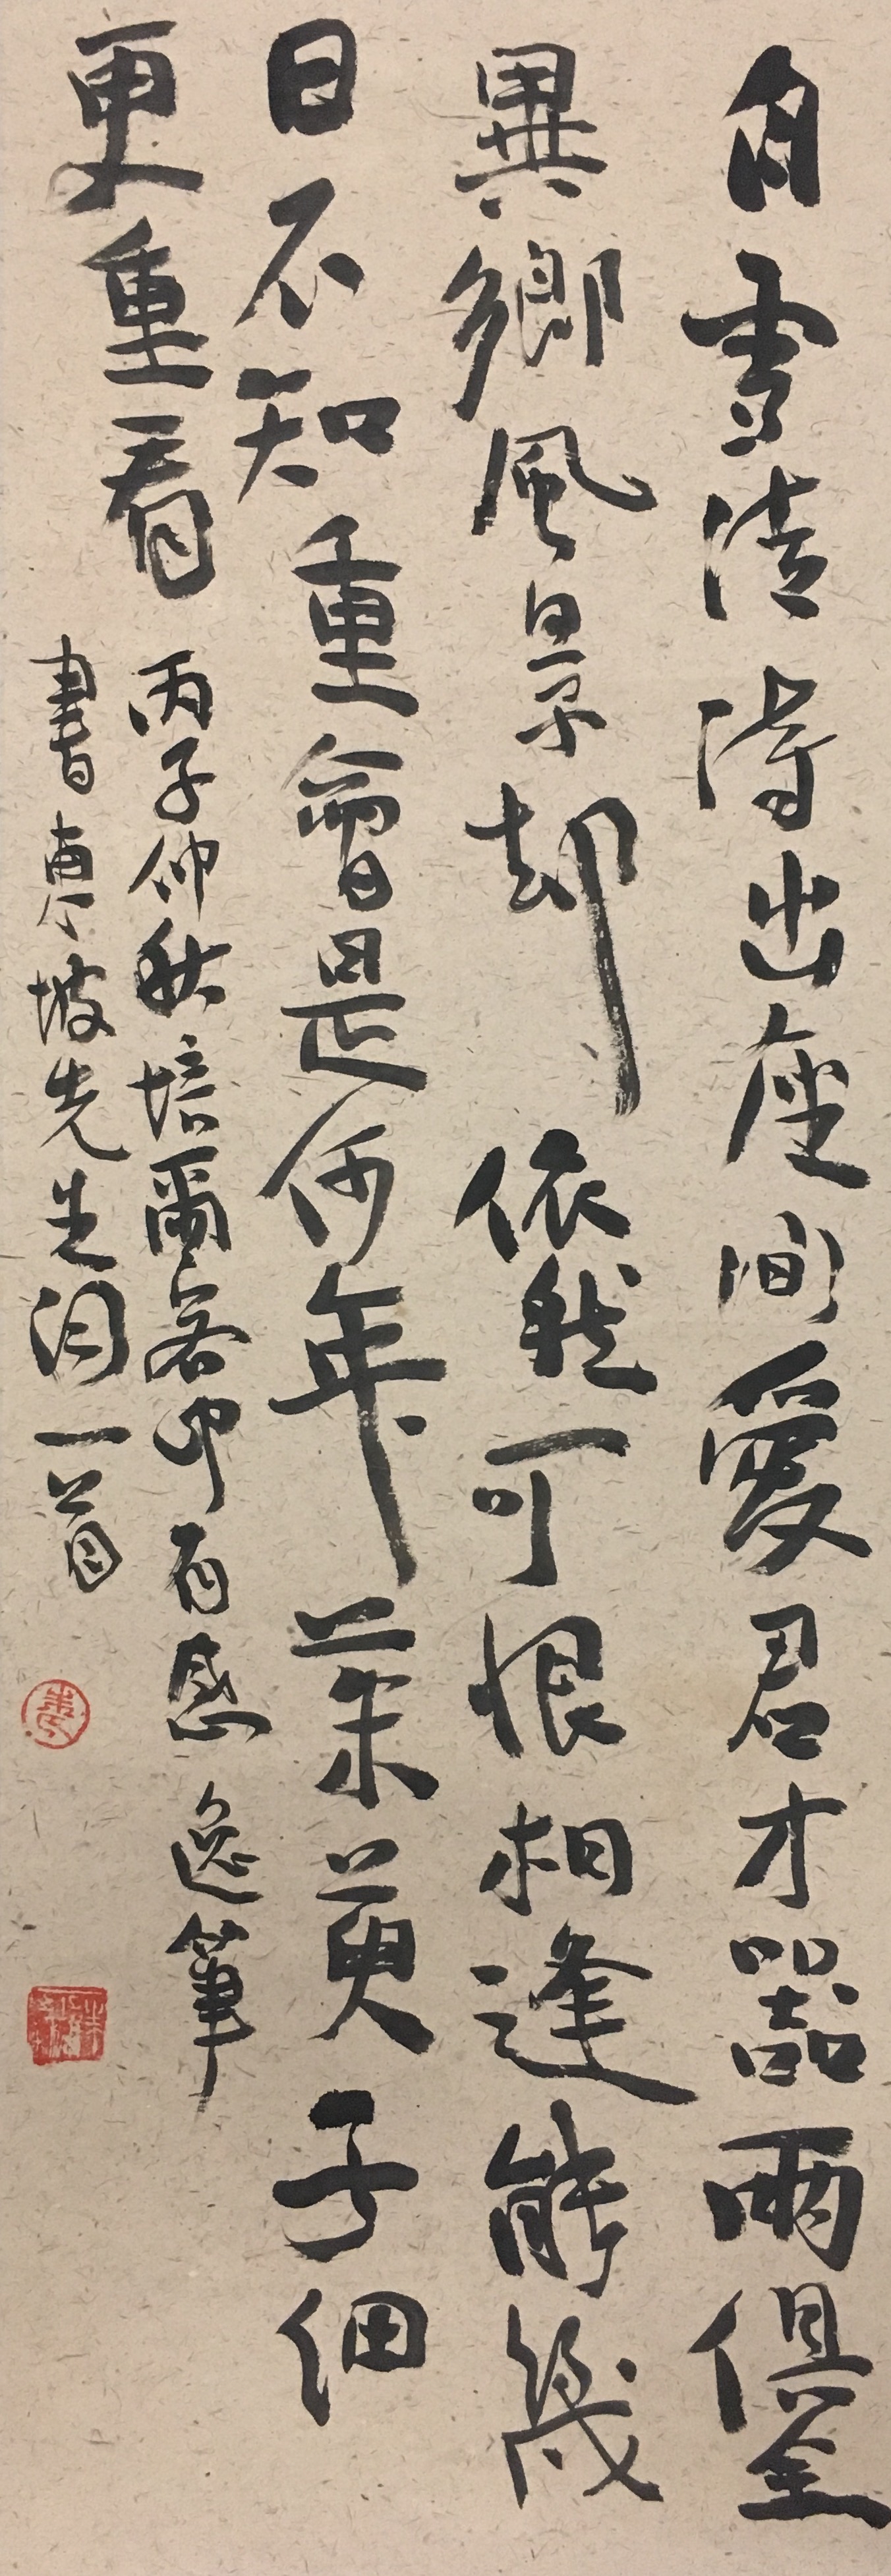 白雪清詩出座間愛君才器兩俱全
異鄉風景却依然可恨相逢能幾
日不知重會是何年茱萸子細
更重看
丙子仲秋培爾客中有感逸筆
書東坡先生詞一首